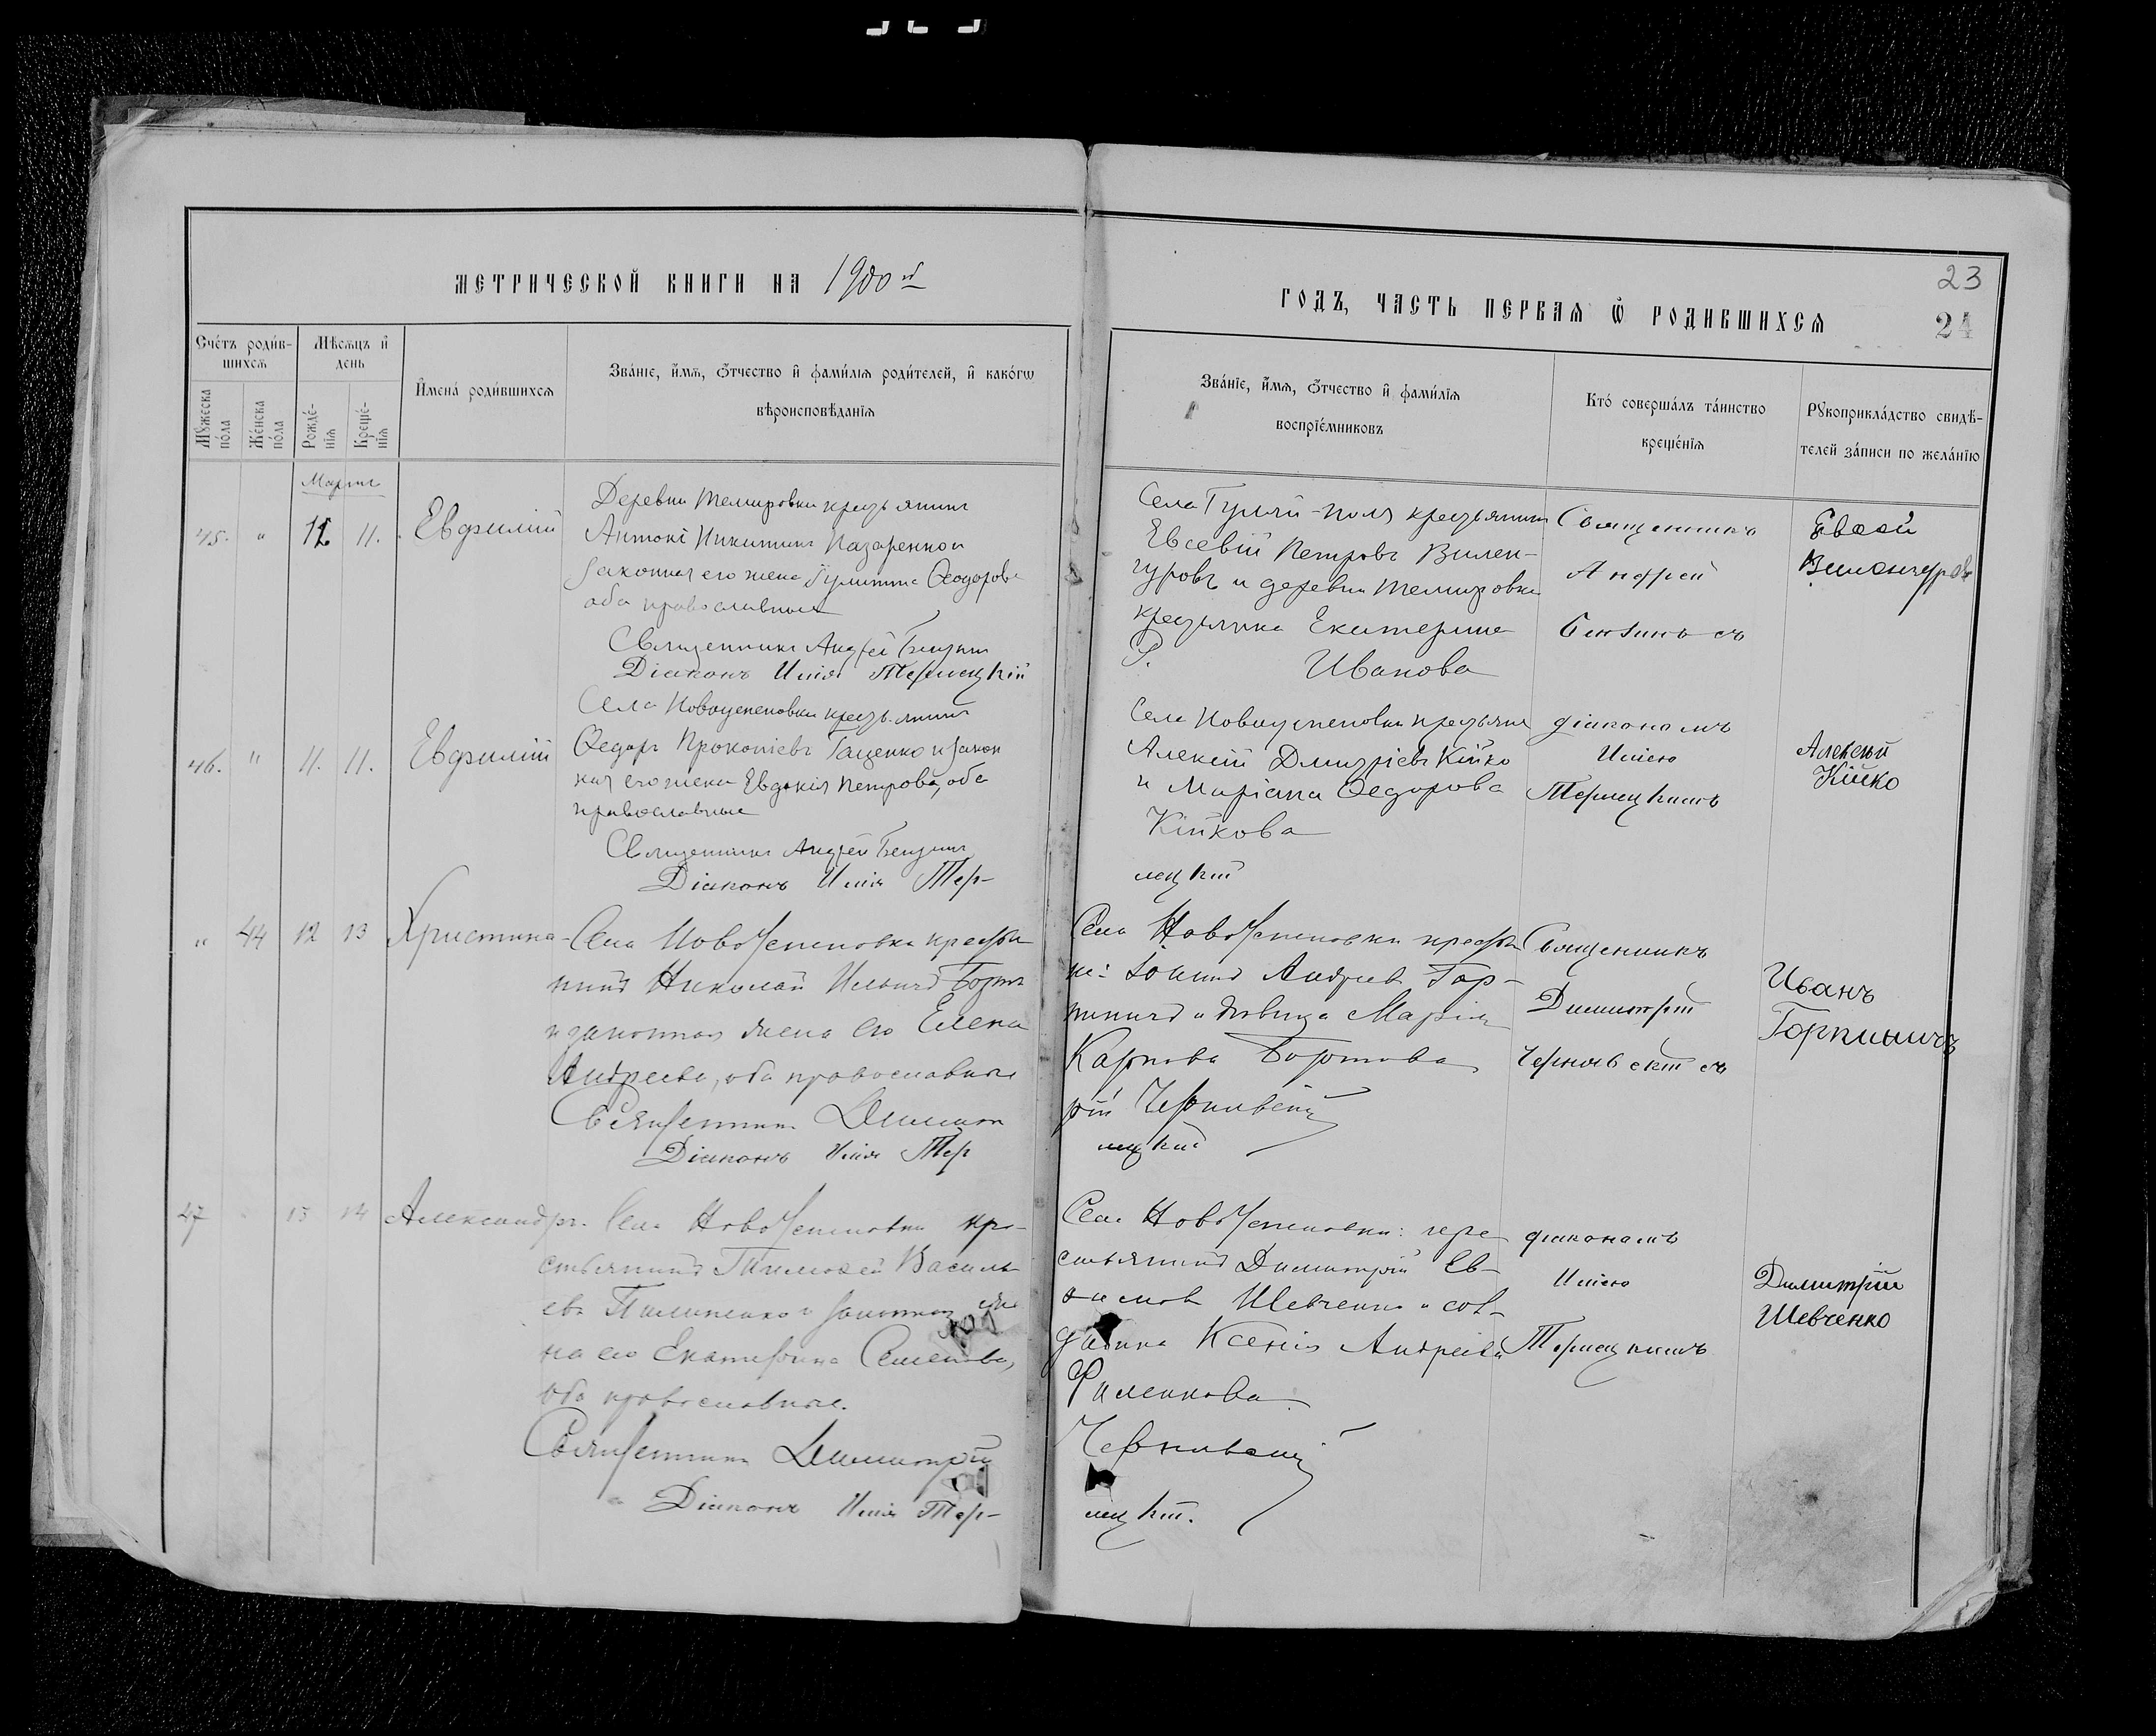 метрической книги на 1900й
годъ, часть первая ѿ родившихсѧ
23
24
Сче́тъ роди́вшихсѧ
Мѣсѧцъ и҆ день
И҆мена̀ роди́вшихсѧ
Зва́нїе, и҆́мѧ, ѻ҆́тчество и҆ фами́лїѧ роди́телей, и҆ како́гѡ
вѣроисповѣ́данїѧ
Мꙋ́жеска по́ла
Же́нска по́ла
Рожде́нїѧ
Креще́нїѧ
Зва́нїе, и҆́мѧ, ѻ҆́тчество и҆ фами́лїѧ
воспрїе́мниковъ
Кто̀ соверша́лъ та́инство
креще́нїѧ
Рꙋкоприкла́дство свидѣ́-
телей за́писи по жела́нїю
Мартъ
45. " 11. Евфимій
Деревни Темировки крестьянинъ
Антоній Никитинъ Назаренко и
законная его жена Іулитта Ѳеодорова
оба православные
Священникъ Андрей
Діаконъ Илія Терлецкій
Села Гуляй-поля крестьянинъ
Евсевій Петровъ Вилен-
чуровъ и деревни Темировки
крестьянка Екатерина
Иванова
Священникъ
Андрей
Евсей
46. " 11. 11. Евфимій
Села Новоуспеновки крестьянинъ
Ѳедоръ Прокопіевъ Гаценко и закон
ная его жена Евдокія Петрова, оба
православные
Священникъ Андрей
Діаконъ Илія Тер-
Села Новоуспеновки крестьяне
Алексій Дмитріевъ Кійко
и Маріана Ѳедорова
Кійкова
лецкій
діакономъ
Иліею
Терлецкимъ
Алексѣй
Кійко
" 44 12 13 Христина
Села НовоУспеновки крестья
нинъ Николай Ильичъ Бортъ
и законная жена его Елена
Андреева, оба православные
Священникъ Димит
Діаконъ Илія Тер
Села НовоУспеновки крестья
не: Іоаннъ Андреевъ Гор-
пиничъ и дѣвица Марія
Карпова Бортова
рій Чернявскій
лецкій
Священникъ
Димитрій
Чернявскій съ
Иванъ
Горпиничъ
47 13 14 Александръ.
Села НовоУспеновки кре-
стьянинъ Тимоѳей Василь
евъ Пилипенко и законная же
на его Екатерина Семенова,
оба православные.
Священникъ Димитрій
Діаконъ Илія Тер-
Села НовоУспеновки: кре
стьянинъ Димитрій Ев-
ѳимовъ Шевченко и сол-
датка Ксенія Андреева
Филенкова
Чернявскій
лецкій.
діакономъ
Иліею
Терлецкимъ
Димитрій
Шевченко